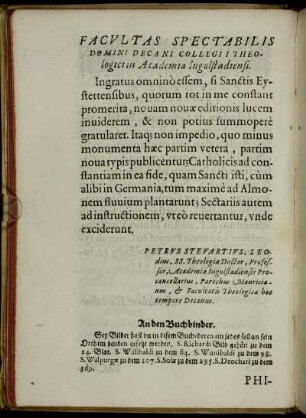 FACVLTAS SPECTABILIS
DOMINI DECANI COLLEGII THEO-
logici in Academia Ingolstadiensi.
Ingratus omninò essem, si Sanctis Ey-
stettensibus, quorum tot in me constant
promerita, nouam nouæ editionis lucem
inuiderem, & non potius summoperè
gratularer. Itaq; non impedio, quo minus
monumenta hæc partim vetera, partim
noua typis publicentur; Catholicis ad con-
stantiam in ea fide, quam Sancti isti, cùm
alibi in Germania, tum maximè ad Almo-
nem fluuium plantarunt; Sectariis autem
ad instructionem, vt eò reuertantur, vnde
exciderunt.
PETRVS STEVARTIVS, LEO-
dius, SS. Theologiæ Doctor, Profes-
sor, Academiæ Ingolstadiensis Pro-
cancellarius, Parochus Mauritia-
nus, & Facultatis Theologicæ hoc
tempore Decanus.
An den Buchbinder.
Sex Bilder hast du in disem Buch, deren ein jedes soll an sein
Orth eingebunden gesetzt werden. S. Richardi Bild gehört zu dem
24. Blat. S. Willibaldi zu dem 84. S. Wunibaldi zu dem 98.
S. Walpurgæ zu dem 107. S. Solæ zu dem 297. S. Deochari zu dem
309.
PHI-